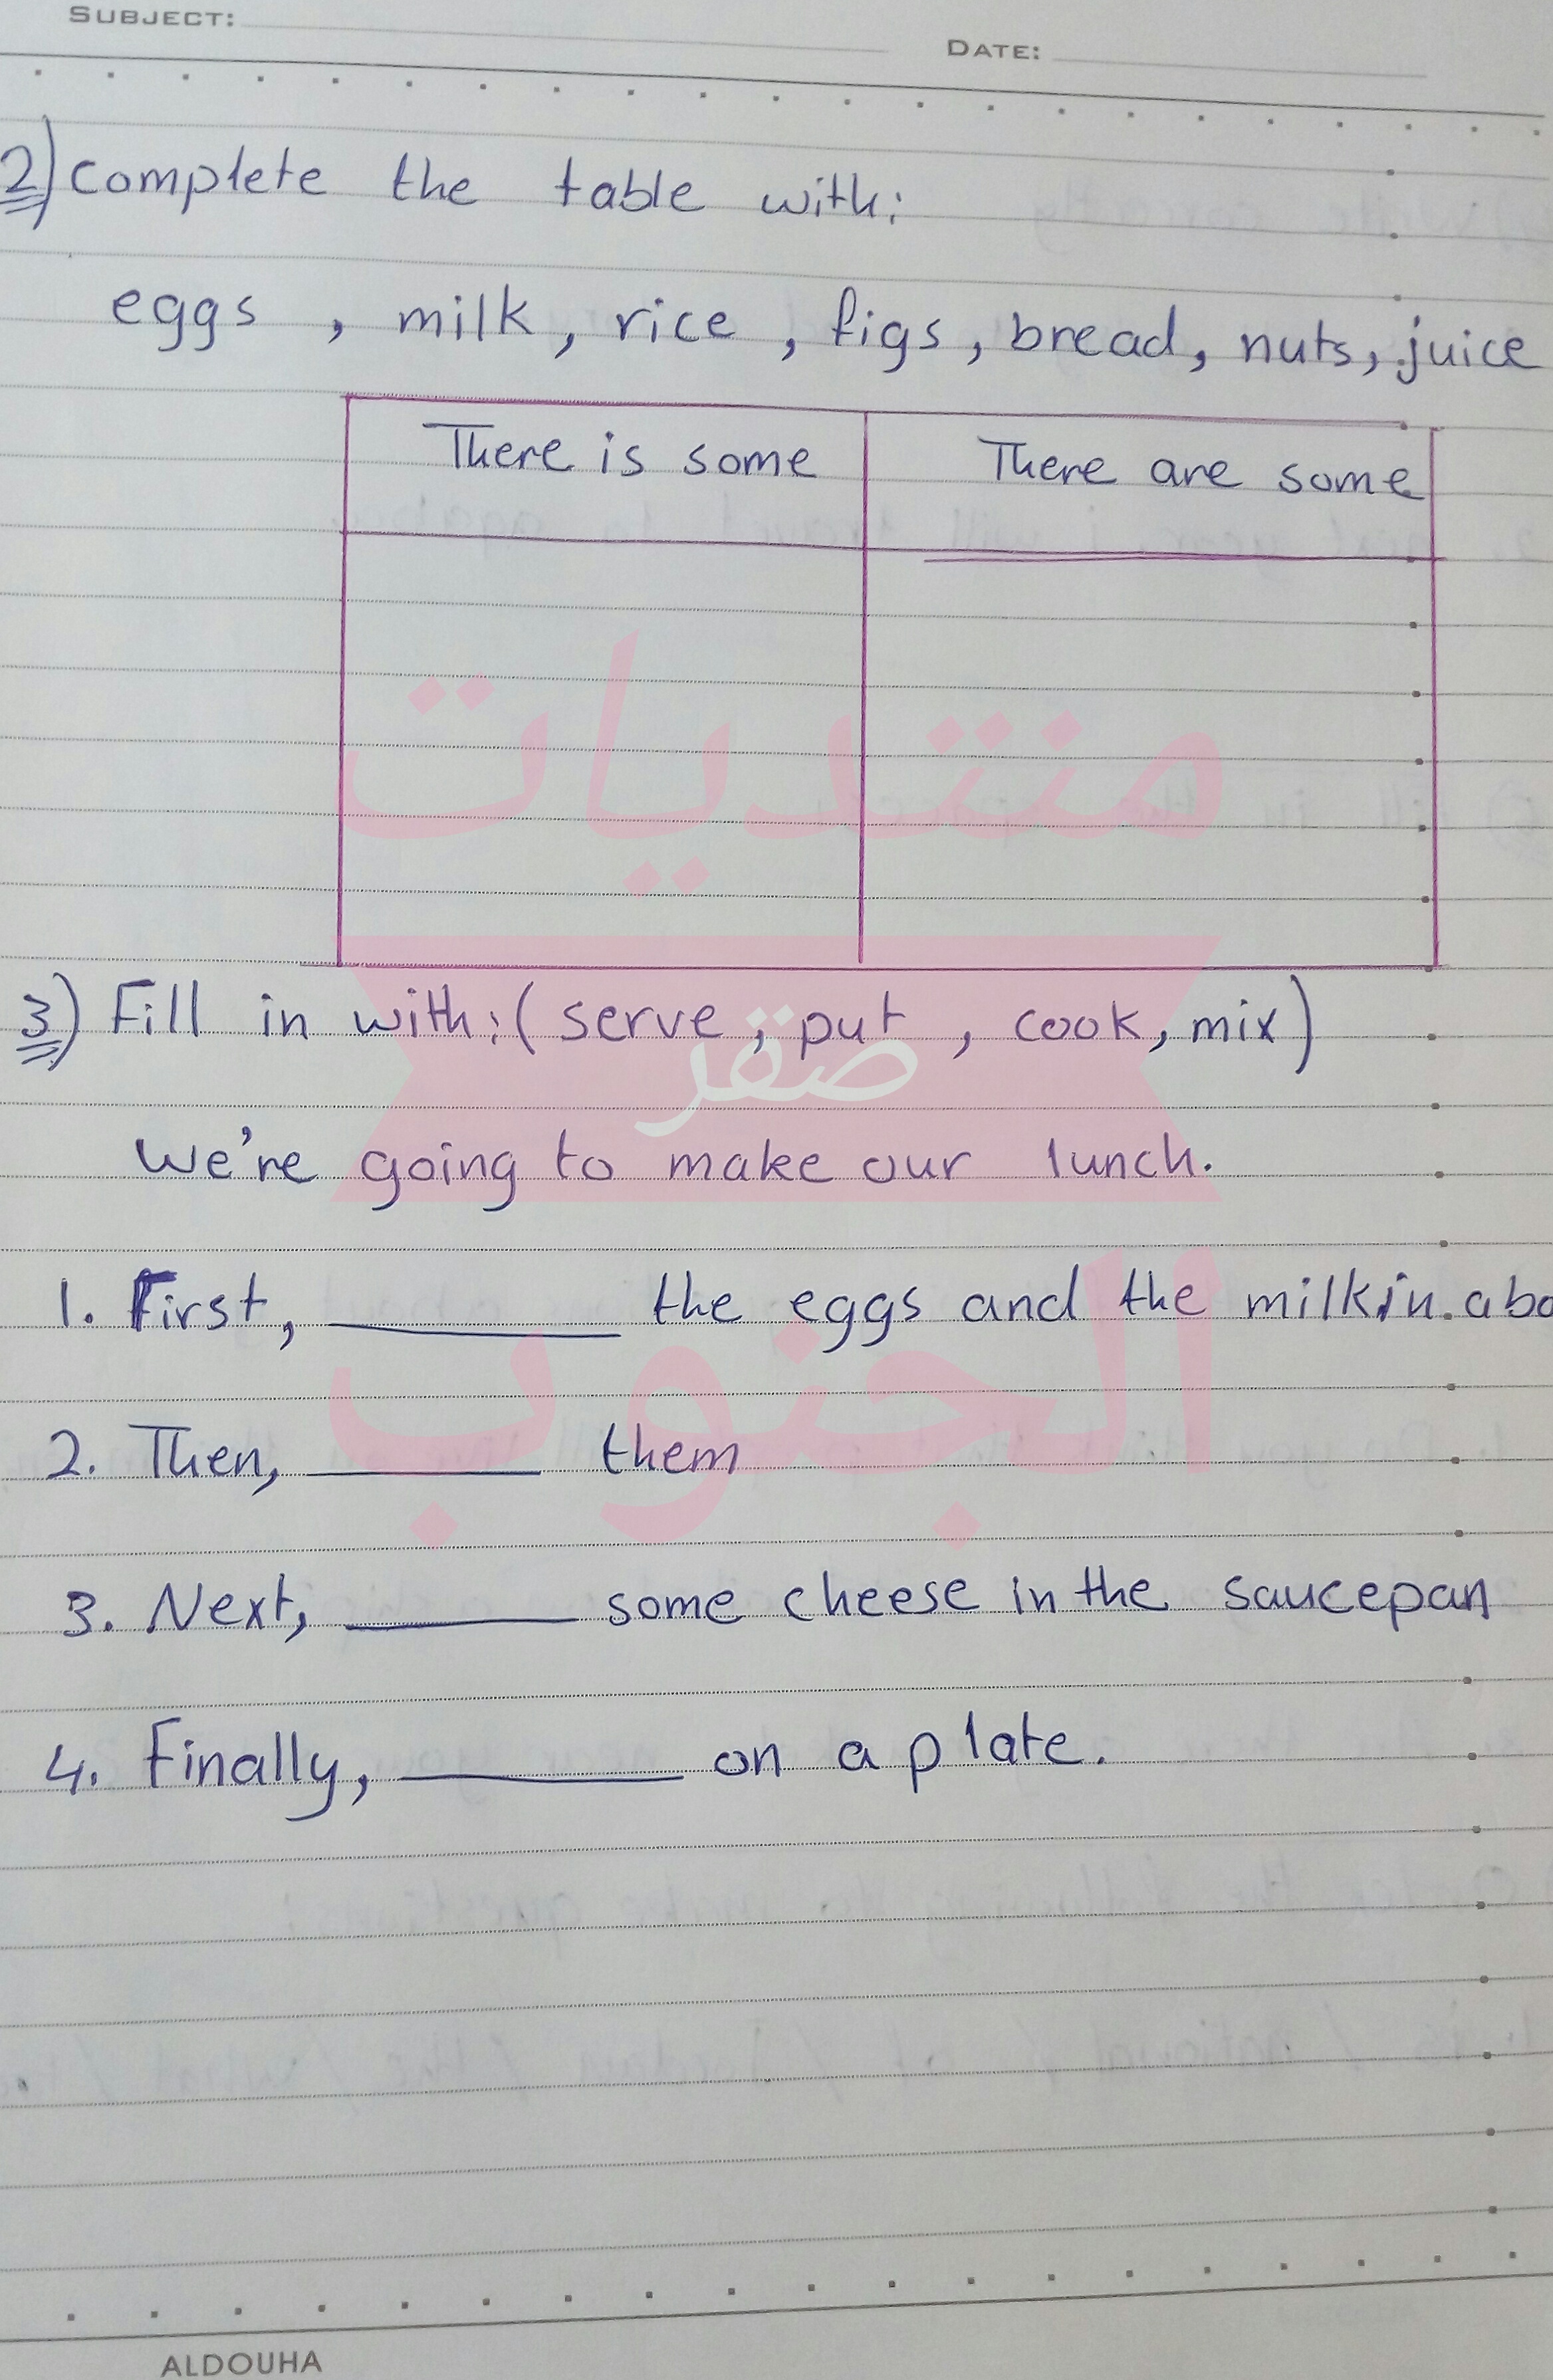 SUBJECT:
DATE:
2) complete the table with:
eggs , milk, rice , figs, bread, nuts, juice
There is some There are some
منتديات
3) Fill in with: ( serve, put , cook, mix)
صقر
we're going to make our lunch.
1. First, ________ the eggs and the milk in a bo
الجنوب
2. Then, ________ them
3. Next, ________ some cheese in the saucepan
4. Finally, ________ on a plate.
ALDOUHA